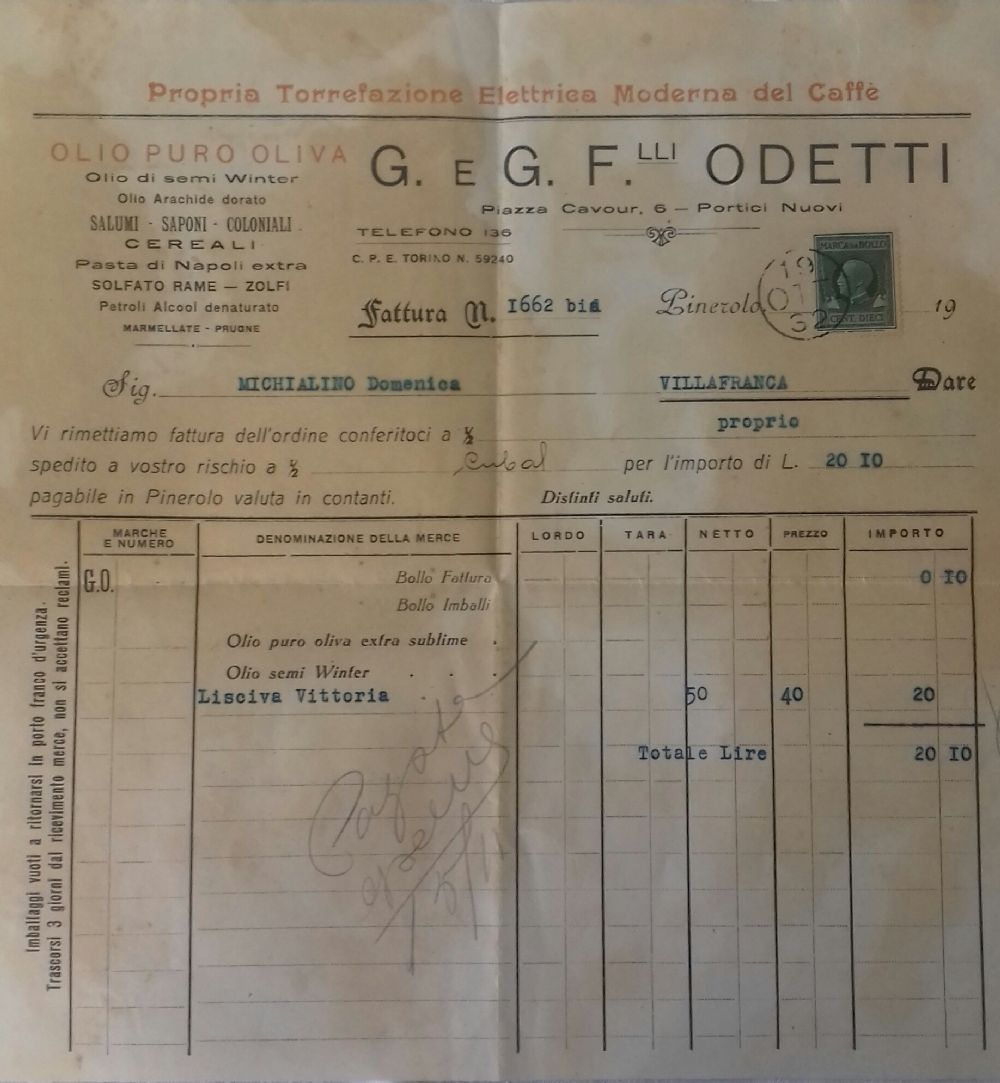 Propria Torrefazione Elettrica Moderna del Caffè
OLIO PURO OLIVA
Olio di semi Winter
Olio Arachide dorato
SALUMI - SAPONI - COLONIALI
CEREALI
Pasta di Napoli extra
SOLFATO RAME — ZOLFI
Petroli Alcool denaturato
MARMELLATE - PRUGNE
G. E G. F.LLI ODETTI
Piazza Cavour, 6 — Portici Nuovi
TELEFONO 136
C. P. E. TORINO N. 59240
MARCA DA BOLLO
CENT. DIECI
19
32
Fattura N. 1662 bis
Pinerolo, 19
Sig. MICHIALINO Domenica VILLAFRANCA Dare
Vi rimettiamo fattura dell'ordine conferitoci a ½ proprio
spedito a vostro rischio a ½ per l'importo di L. 20 10
pagabile in Pinerolo valuta in contanti. Distinti saluti.
MARCHE E NUMERO DENOMINAZIONE DELLA MERCE LORDO TARA NETTO PREZZO IMPORTO
G.O. Bollo Fattura 0 10
Bollo Imballi
Olio puro oliva extra sublime .
Olio semi Winter . . .
Lisciva Vittoria 50 40 20
Totale Lire 20 10
Pagato
Imballaggi vuoti a ritornarsi in porto franco d'urgenza.
Trascorsi 3 giorni dal ricevimento merce, non si accettano reclami.